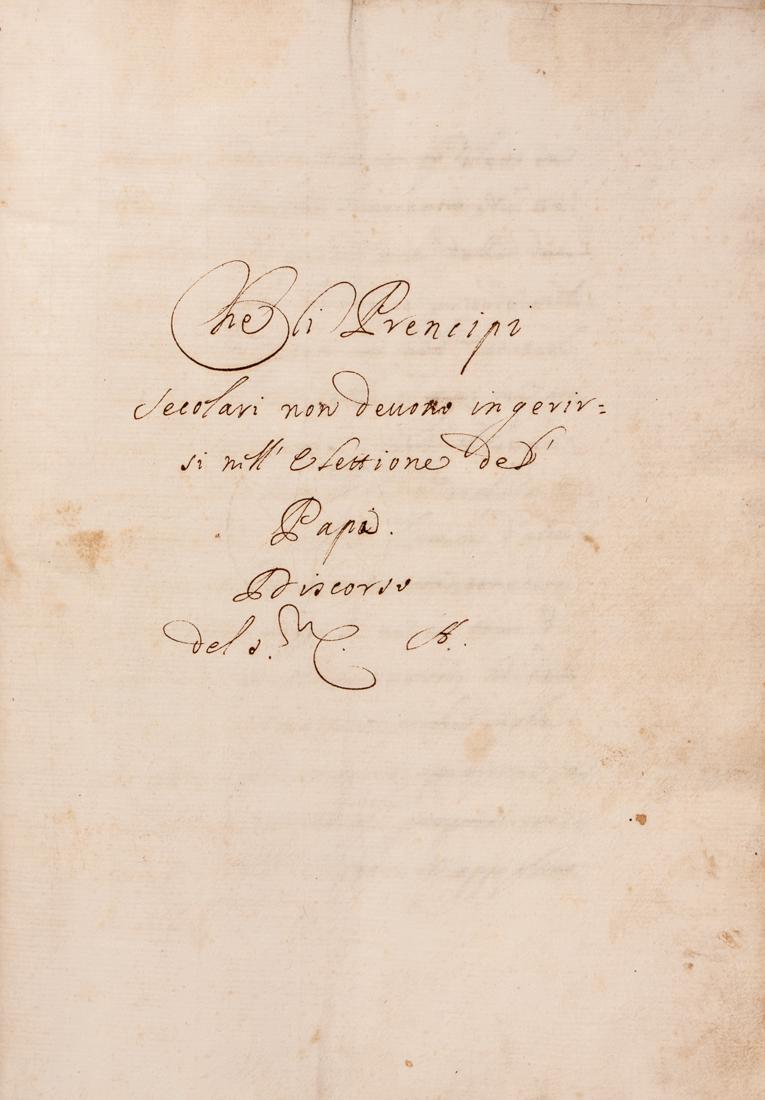 Che li Prencipi
secolari non deuono ingerir=
si nell' Elettione del
Papa.
Discorso
del s.r C. A.